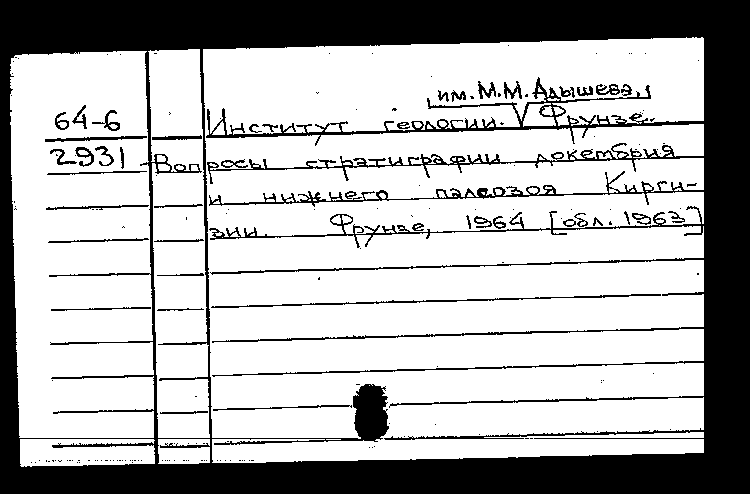 им. М.М. Адышева,
64-6 Институт геологии. Фрунзе.
2931 Вопросы стратиграфии докембрия
и нижнего палеозоя Кирги-
зии. Фрунзе, 1964 [обл. 1963]